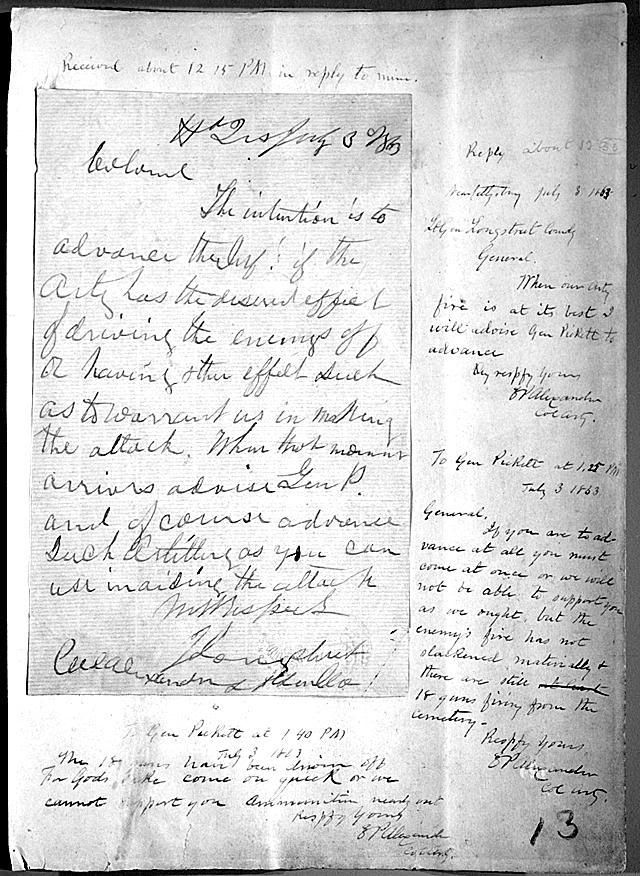 Received about 12 15 PM in reply to mine.
Hd Qrs July 3d 1863
Colonel
The intention is to
advance the Inf. if the
Arty has the desired effect
of driving the enemys off
or having other effect such
as to warrant us in making
the attack. When that moment
arrives advise Gen P.
and of course advance
such Artillery as you can
use in aiding the attack
J Longstreet
Reply about 12
July 3 1863
Lt Gen Longstreet Comdg
General.
When our arty
fire is at its best I
will advise Gen Pickett to
advance
Respfy Yours
EPAlexander
Col arty.
To Gen Pickett at 1.25 PM
July 3 1863
General,
If you are to ad-
vance at all you must
come at once or we will
not be able to support you
as we ought, but the
enemy's fire has not
slackened materially &
there are still at least
18 guns firing from the
cemetery.
Respfy Yours
EPAlexander
Col arty.
To Gen Pickett at 1 40 PM
July 3 1863
The 18 guns have been driven off
For Gods sake come on quick or we
cannot support you Ammunition nearly out
Respfy Yours
EPAlexander
Col arty.
13